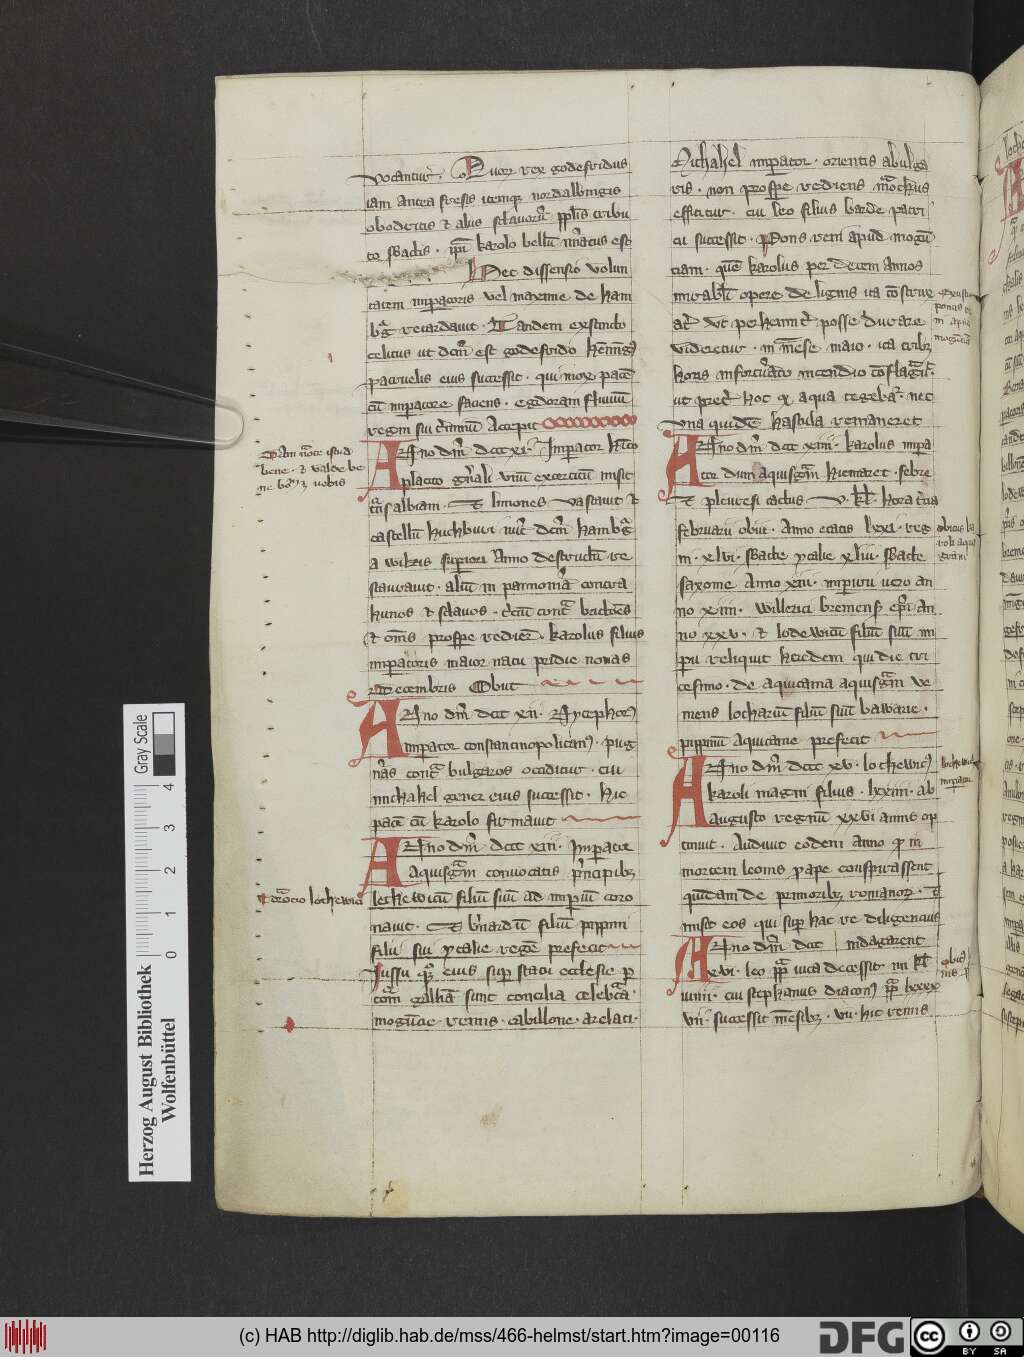 vocantur. Quorum rex godefridus
iam antea fresis itemque nordalbingis
obodritis et aliis sclauorum populis tribu
tis subactis. ipsi karolo bellum minatus est
Hec dissensio volun
tatem imperatoris vel maxime de ham
burg retardauit. Tandem extincto
celitus ut dictum est godefrido hemingus
patruelis eius successit. qui mox pacem
cum imperatore faciens. egdoram fluuium
regni sui terminum accepit
Anno domini dccc xi. Imperator habito
placito generali vnum exercitum misit
trans albiam. et linones vastauit et
castellum huchburi iuxta dictum hamburg
a wilcis superiori anno destructum re
staurauit. alium in pannoniam contra
hunos et sclauos. tercium contra brictones
et omnes prospere redierunt. karolus filius
imperatoris maior natu pridie nonas
decembris obiit
Anno domini dccc xii. Nycephorus
imperator constantinopolitanus. pug
nans contra bulgaros occiditur. cui
michahel gener eius successit. hic
pacem cum karolo firmauit
Anno domini dccc xiii. Imperator
Aquisgrani conuocatis principibus
lothewicum filium suum ad imperium coro
nauit. Et bernardum filium pippini
filii sui ytalie regem prefecit
Iussu quoque eius super statu ecclesie per
totam galliam sunt concilia celebrata.
moguncie. remis. cabillone. arelati.
Nam nota istud
bene. et valde be
ne
coronatio lothewici
Michahel imperator. orientis a bulga
ris. non prospere rediens monachus
efficitur. cui leo filius barde patri
cii successit. Pons reni apud mogun
ciam. quem karolus per decem annos
mirabili opere de lignis ita construx
erat ut perhenniter posse durare
videretur. in mense maio. ita tribus
horis infortunato incendio conflagrauit
ut preter hoc quod aqua tegebatur. nec
vna quidem hastula remaneret
Anno domini dccc xiiii. karolus impera
tor dum aquisgrani hiemaret. febre
et pleuresi tactus. v. kl. hora tercia
februarii obiit. Anno etatis lxxi. reg
ni. xlvi. subacte ytalie xliii. subacte
saxonie anno xiii. imperii uero an
no xiiii. willerici bremensis episcopi an
no xxv. et lodewicum filium suum im
perii reliquit heredem qui die tri
cesimo. de aquitania aquisgrani ve
niens lotharium filium suum bawarie.
pippinum aquitanie prefecit
Anno domini dccc xv. lothewicus
karoli magni filius. lxxiiii. ab
augusto regnum xxvi annis op
tinuit. Audiuit eodem anno quod in
mortem leonis pape conspirassent
quidam de primoribus romanorum. et
misit eos qui super hac re diligencius
Anno domini dccc | indagarent
xvi. leo papa iii ca decessit. iiii kl
iunii. cui stephanus diaconus papa lxxxx
vii. successit mensibus. vii. hic remis
maguncia
obitus ka
roli aquis
grani
lothewicus
imperator